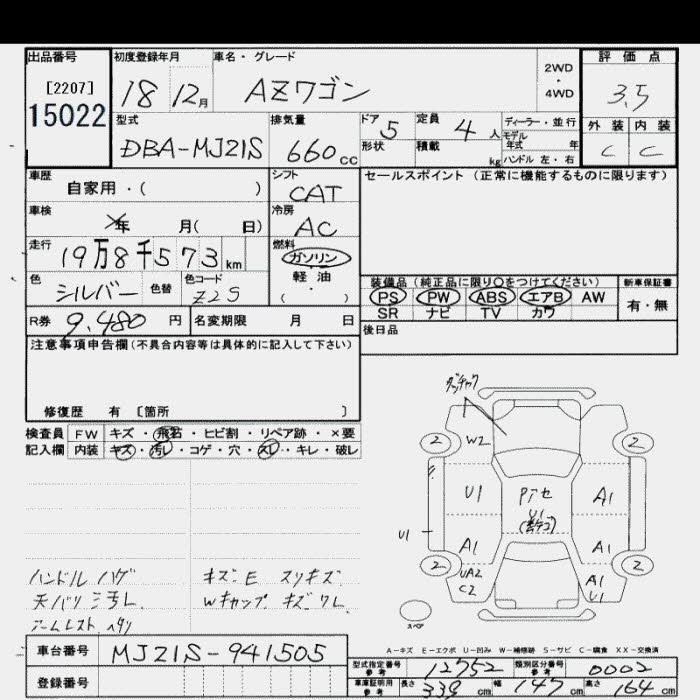 出品番号 初度登録年月 車名・グレード 評価点
[2207] 18 12月 AZワゴン 2WD・4WD 3.5
15022
型式 排気量 ドア 5 定員 4人 ディーラー・並行 外装 内装
DBA-MJ21S 660cc 形状 積載 kg モデル年式 年 C C
ハンドル 左・右
車歴 シフト セールスポイント (正常に機能するものに限ります)
自家用・( ) CAT
車検 冷房
年 月( 日) AC
走行 燃料
19万8千573km ガソリン
色 色替 色コード 軽油 装備品 (純正品に限り○をつけてください) 新車保証書
シルバー Z2S ( ・ ) PS PW ABS エアB AW 有・無
SR ナビ TV カワ
R券 9,480円 名変期限 月 日 後日品
注意事項申告欄(不具合内容等は具体的に記入して下さい)
修復歴 有 〔箇所 〕
検査員 FW キズ・飛石・ヒビ割・リペア跡・×要
記入欄 内装 キズ・汚レ・コゲ・穴・スレ・キレ・破レ
2 W2 2
U1 U1 A1
U1 A1 A1
2 UA2 C2 A1 U1 2
スペア
ハンドル ハゲ キズ:E スリキズ
天バリ 汚レ Wキャップ キズ ワレ
アームレスト ヘタリ
A-キズ E-エクボ U-凹み W-補修跡 S-サビ C-腐食 XX-交換済
車台番号 MJ21S-941505
型式指定番号 参考 12752 類別区分番号 参考 0002
登録番号 車庫証明用 参考 長さ 339cm 幅 147cm 高さ 164cm